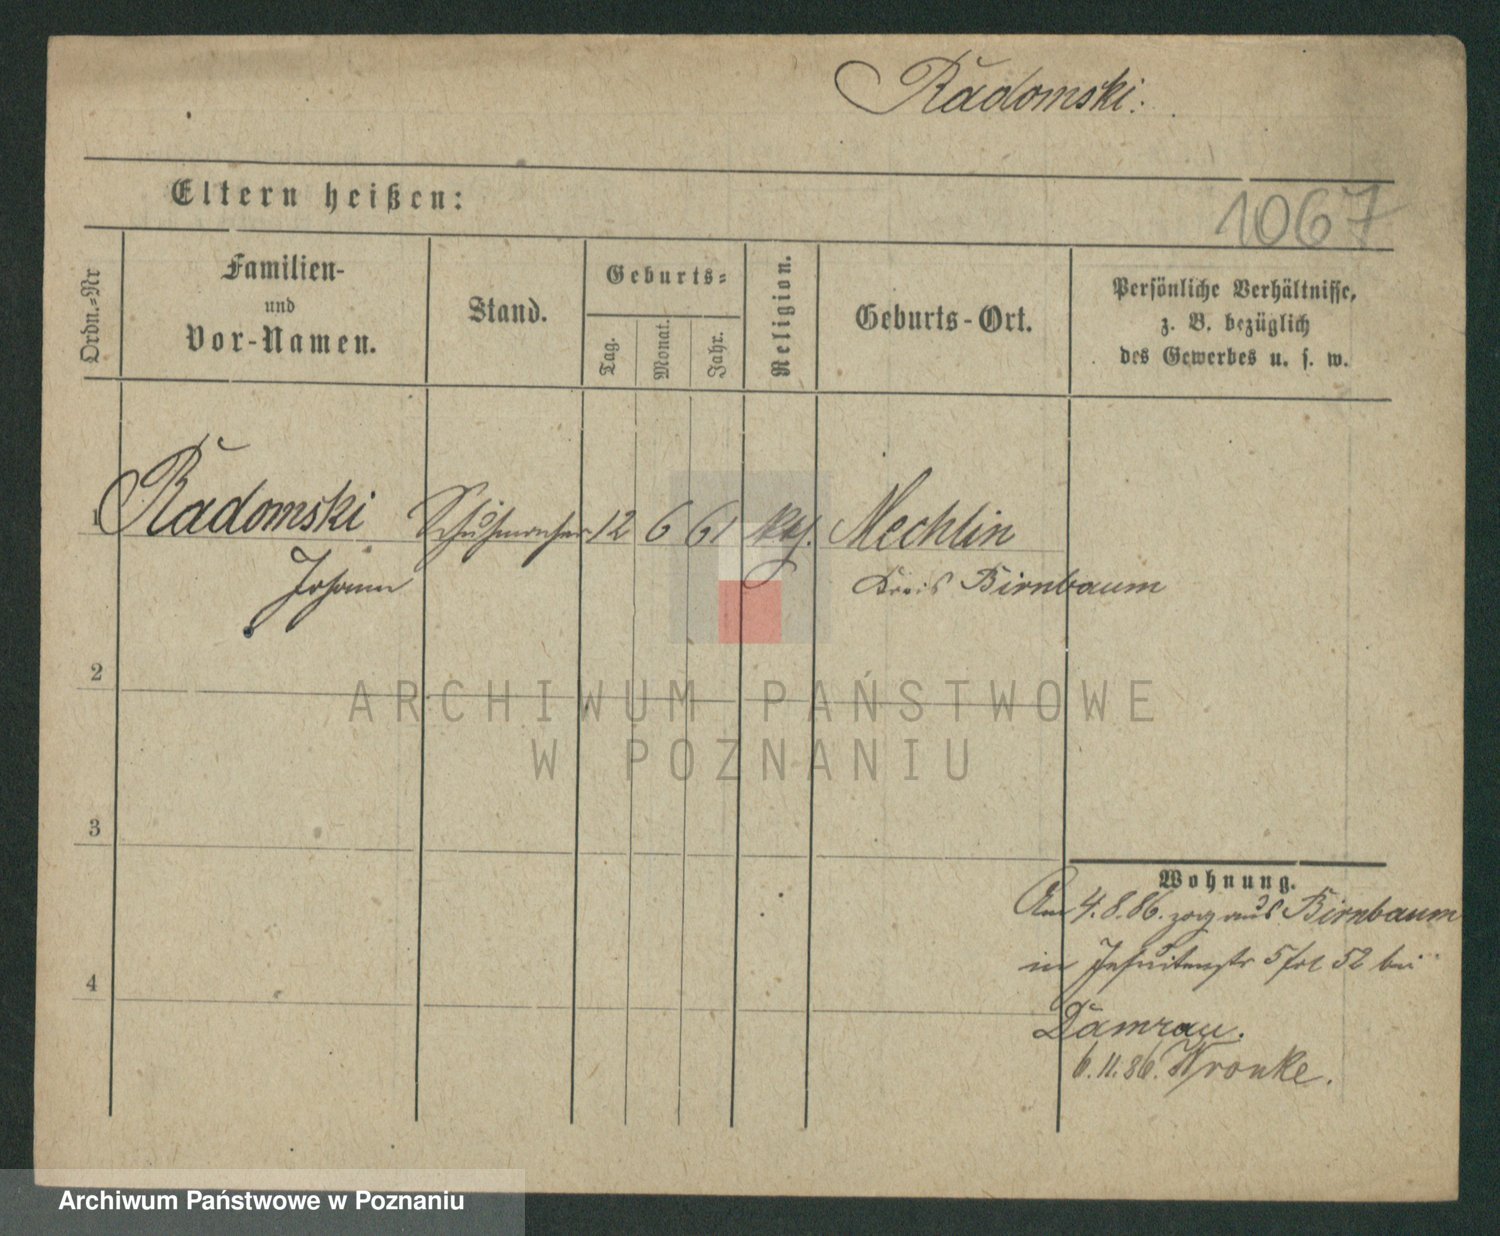 Radomski.
Eltern heißen:
1067
Ordn.-Nr
Familien-
und
Vor-Namen.
Stand.
Geburts-
Tag.
Monat.
Jahr.
Religion.
Geburts-Ort.
Persönliche Verhältnisse,
z. B. bezüglich
des Gewerbes u. s. w.
1 Radomski Schuhmacher 12 6 61 kth. Mechlin
Johann Kreis Birnbaum
2
ARCHIWUM PAŃSTWOWE
W POZNANIU
3
Wohnung.
Am 4.8.86. zog aus Birnbaum
in Jesuitenstr 5 52 bei
4
Damrau.
6.11.86. Wronke.
Archiwum Państwowe w Poznaniu